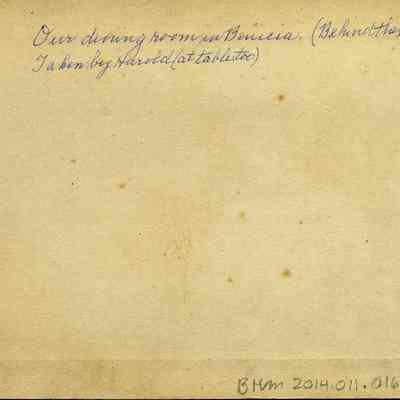 Our dining room in Benicia. (Behind the
Taken by Harold (at table too)
BHM 2014.011.016